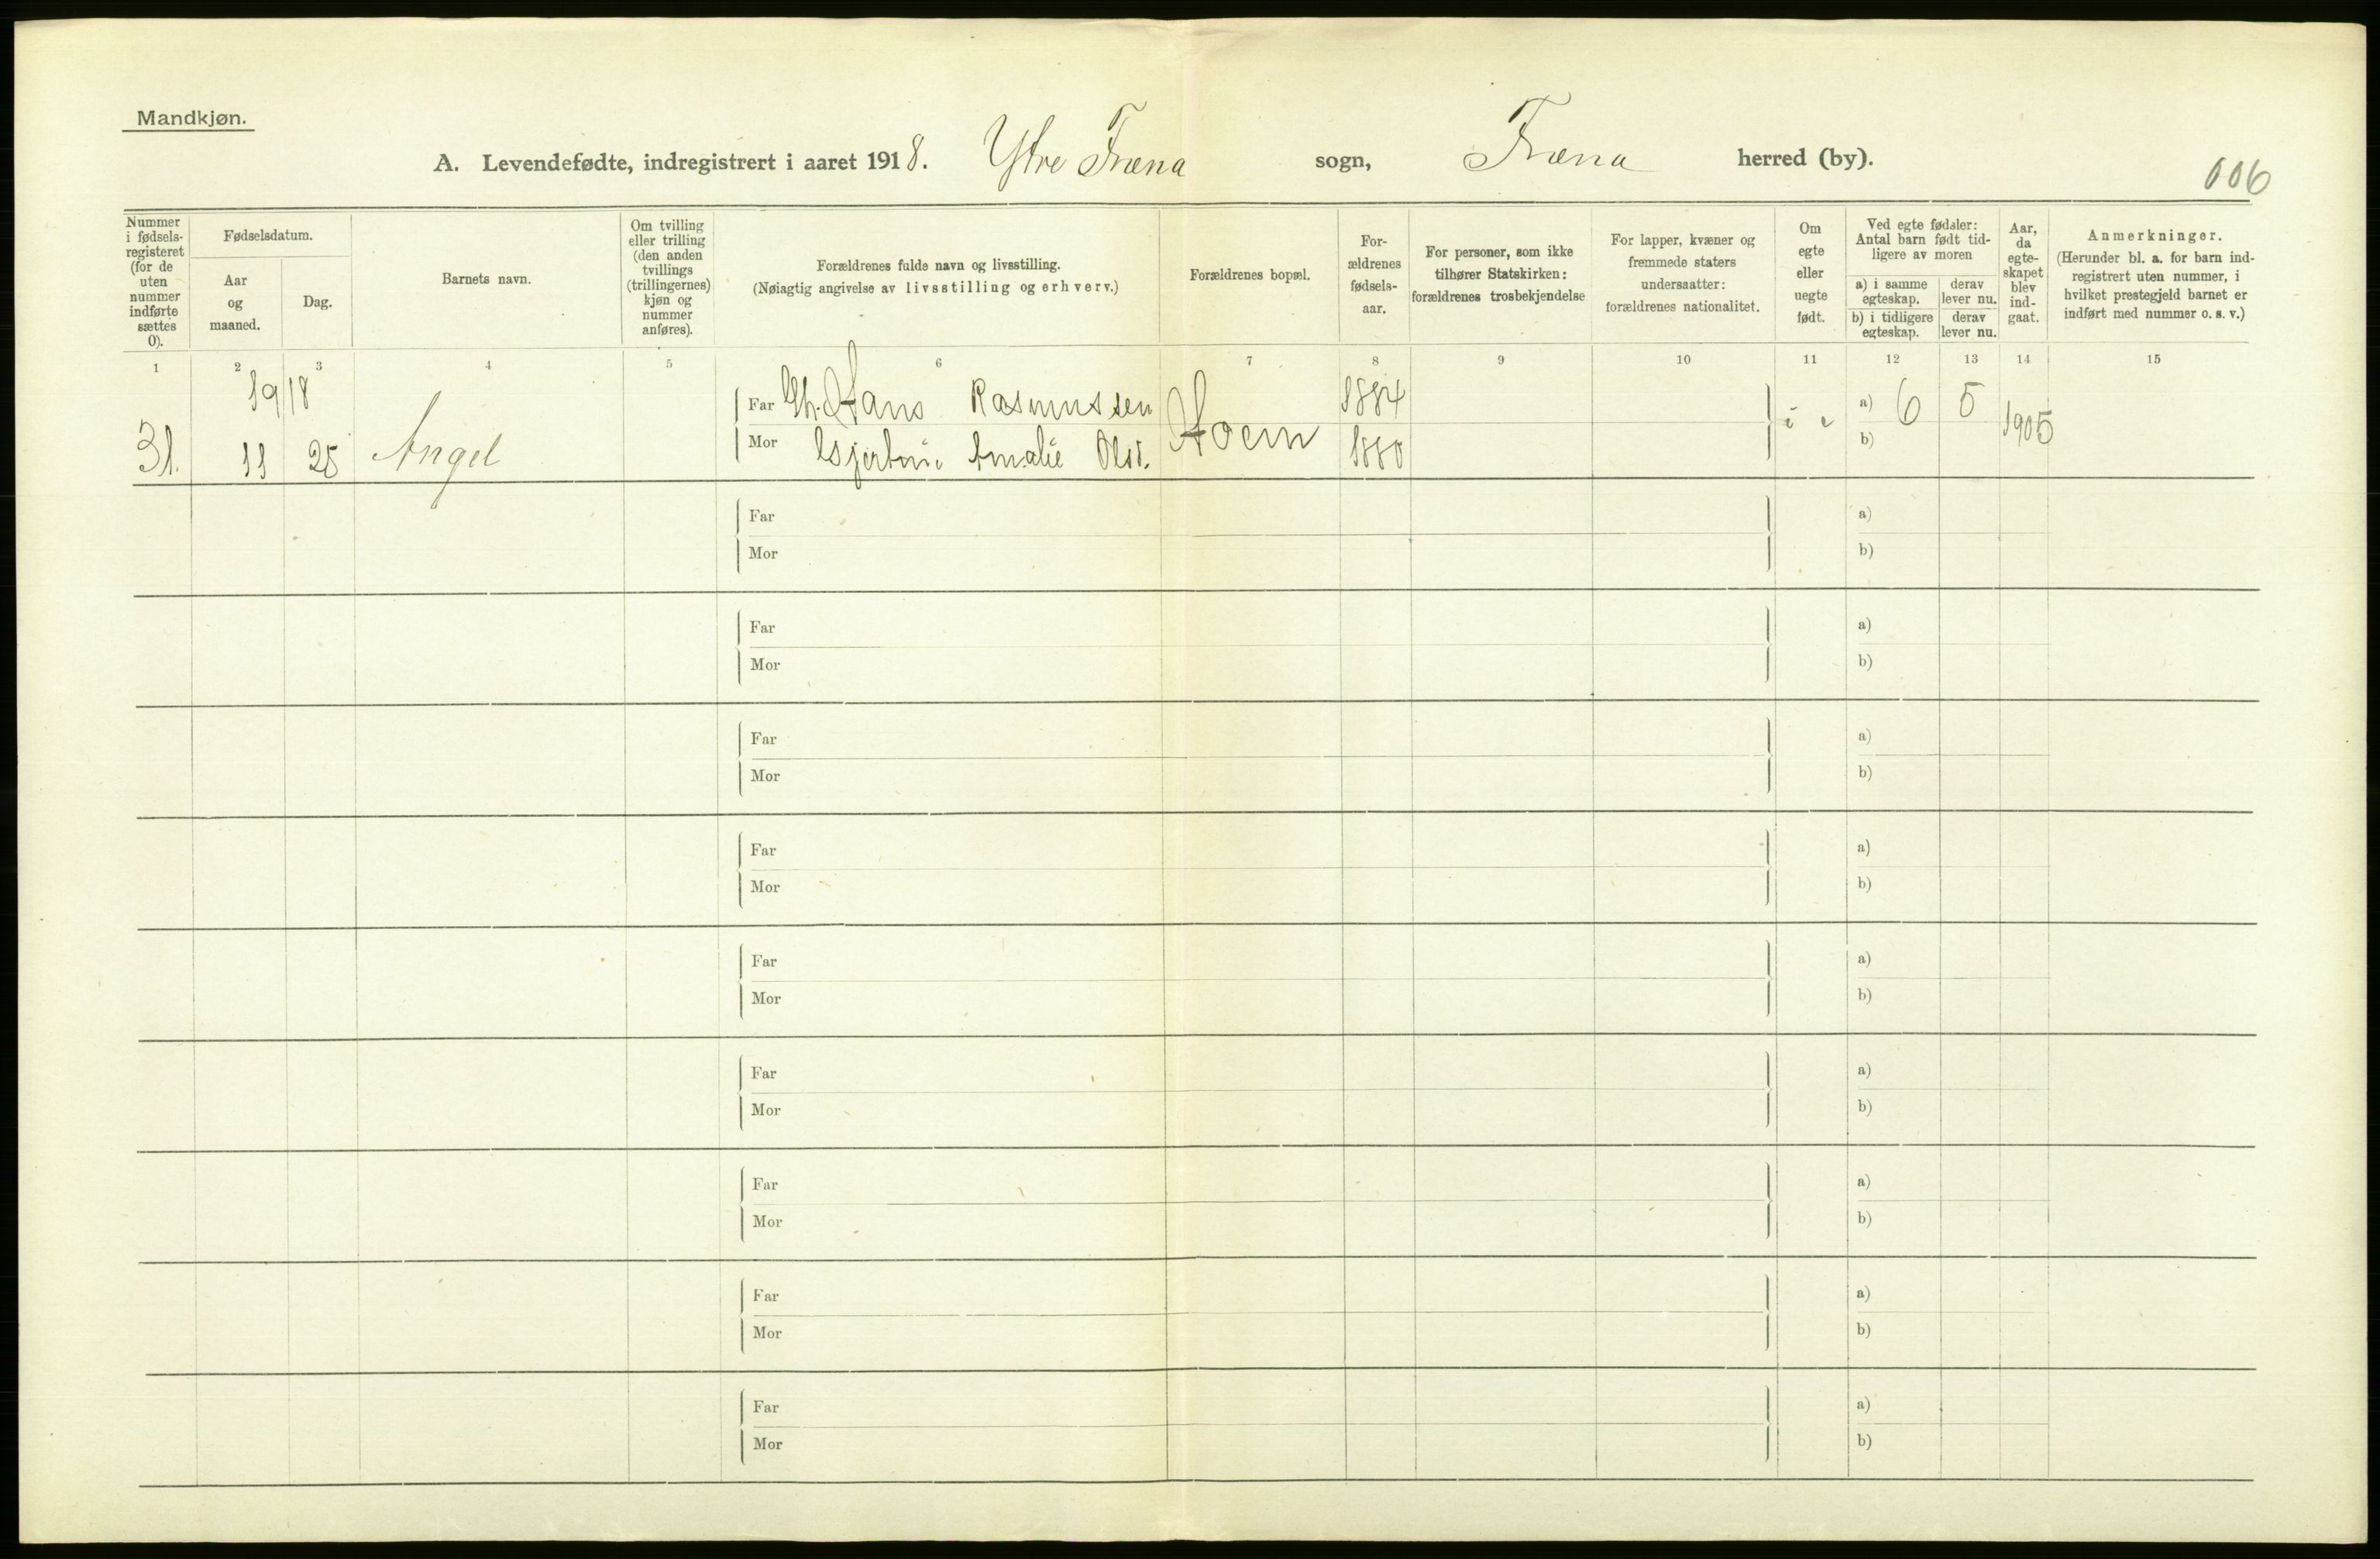 Mandkjøn.
A. Levendefødte, indregistrert i aaret 1918. Ytre Fræna sogn, Fræna herred (by).
006
Nummer i fødsels-registeret (for de uten nummer indførte sættes 0).
Fødselsdatum.
Aar og maaned.
Dag.
Barnets navn.
Om tvilling eller trilling (den anden tvillings (trillingernes) kjøn og nummer anføres).
Forældrenes fulde navn og livsstilling.
(Nøiagtig angivelse av livsstilling og erhverv.)
Forældrenes bopæl.
For-ældrenes fødsels-aar.
For personer, som ikke tilhører Statskirken: forældrenes trosbekjendelse
For lapper, kvæner og fremmede staters undersaatter: forældrenes nationalitet.
Om egte eller uegte født.
Ved egte fødsler: Antal barn født tid-ligere av moren
a) i samme egteskap.
derav lever nu.
b) i tidligere egteskap.
derav lever nu.
Aar, da egte-skapet blev ind-gaat.
Anmerkninger.
(Herunder bl. a. for barn ind-registrert uten nummer, i hvilket prestegjeld barnet er indført med nummer o. s. v.)
1 2 3 4 5 6 7 8 9 10 11 12 13 14 15
1918
Far Hans Rasmussen 1884 a) 6 5
31. 11 25 Angel Mor Amalie Hoem 1880 b) 1905
Far a)
Mor b)
Far a)
Mor b)
Far a)
Mor b)
Far a)
Mor b)
Far a)
Mor b)
Far a)
Mor b)
Far a)
Mor b)
Far a)
Mor b)
Far a)
Mor b)